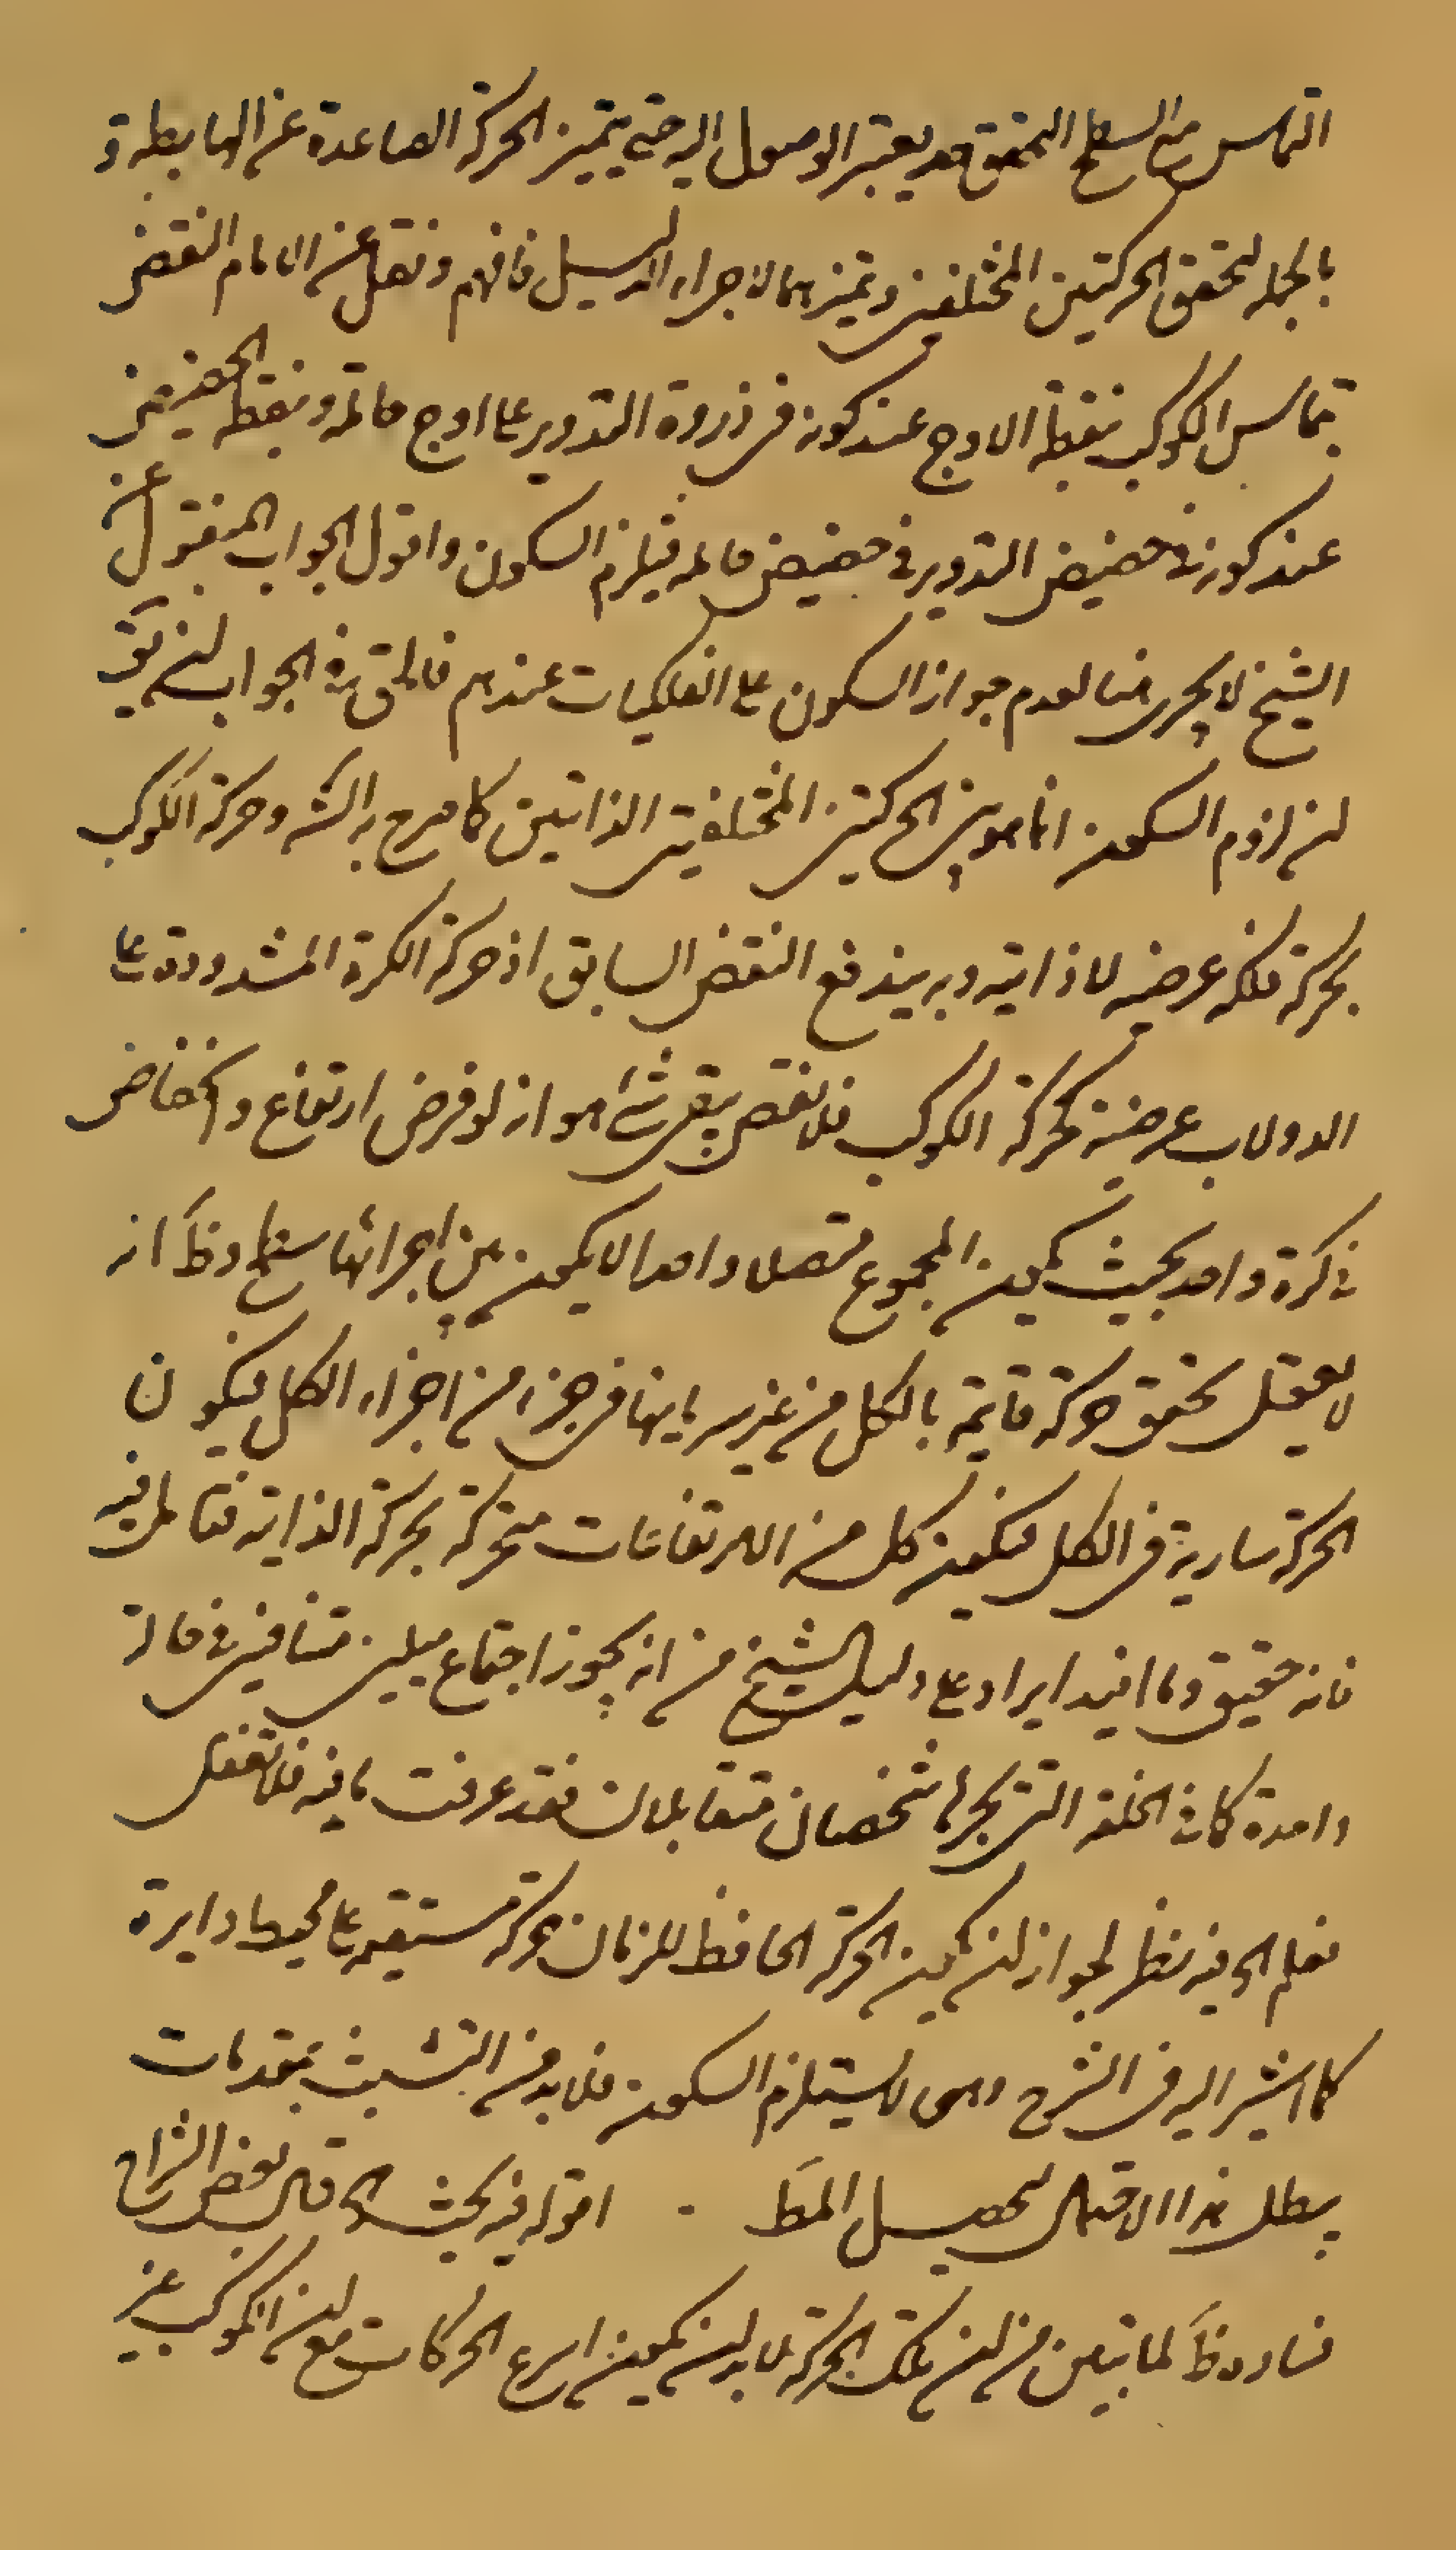 التماس مع السطح المحقق قد يعتبر الوصول اليه حتى يتميز الحركة الصاعدة عن الهابطة و
بالجملة لتحقق الحركتين المختلفين وتميزهما لاجراء الدليل فافهم ونقل عن الامام النقض
بتماس الكوكب نقطة الاوج عند كونه فى ذروة التدوير على اوج حامله ونقطة الحضيض
عند كونه فى حضيض التدوير فى حضيض حامله فيلزم السكون واقول الجواب المنقول عن
الشيخ لا يجرى هنا لعدم جواز السكون على الفلكيات عندهم فالحق فى الجواب ان يقَ
ان لزوم السكون انما هو بين الحركتين المختلفتين الذاتيتين كما صرح به الشَ وحركة الكوكب
بحركة فلكه عرضيه لا ذاتيه وبه يندفع النقض السابق اذ حركة الكرة المشدودة على
الدولاب عرضية كحركة الكوكب فلا نقض بقى شئ هو انه لو فرض ارتفاع وانخفاض
فى كرة واحد بحيث يكون المجموع متصلا واحدا لا يكون بين اجزائها سطح وظَ انه
لا يعقل تحقق حركة قايمة بالكل من غير سريانها فى جزء من اجزاء الكل فيكون
الحركة سارية فى الكل فيكون كل من الارتفاعات متحركة بحركة الذاتيه فتامل فيه
فانه حقيق وما افيد ايراد على دليل الشيخ من انه يجوز اجتماع ميلين متنافيين فى حالة
واحدة كما فى الحلقه التى يجرها شخصان متقابلان فقد عرفت ما فيه فلا تغفل
فعلم الى فيه نظر لجواز ان يكون الحركة الحافظ للزمان حركة مستقيمه على محيط دايرة
كما اشير اليه فى الشرح وهى لا يستلزم السكون فلا بد من التشبث بمقدمات
يبطل هذا الاحتمال لتحصيل المطَ اقول فيه بحث الى قال بعض الشراح
فساده ظَ لما تبين من ان تلك الحركة لا بد ان يكون اسرع الحركات مع ان الكوكب عن